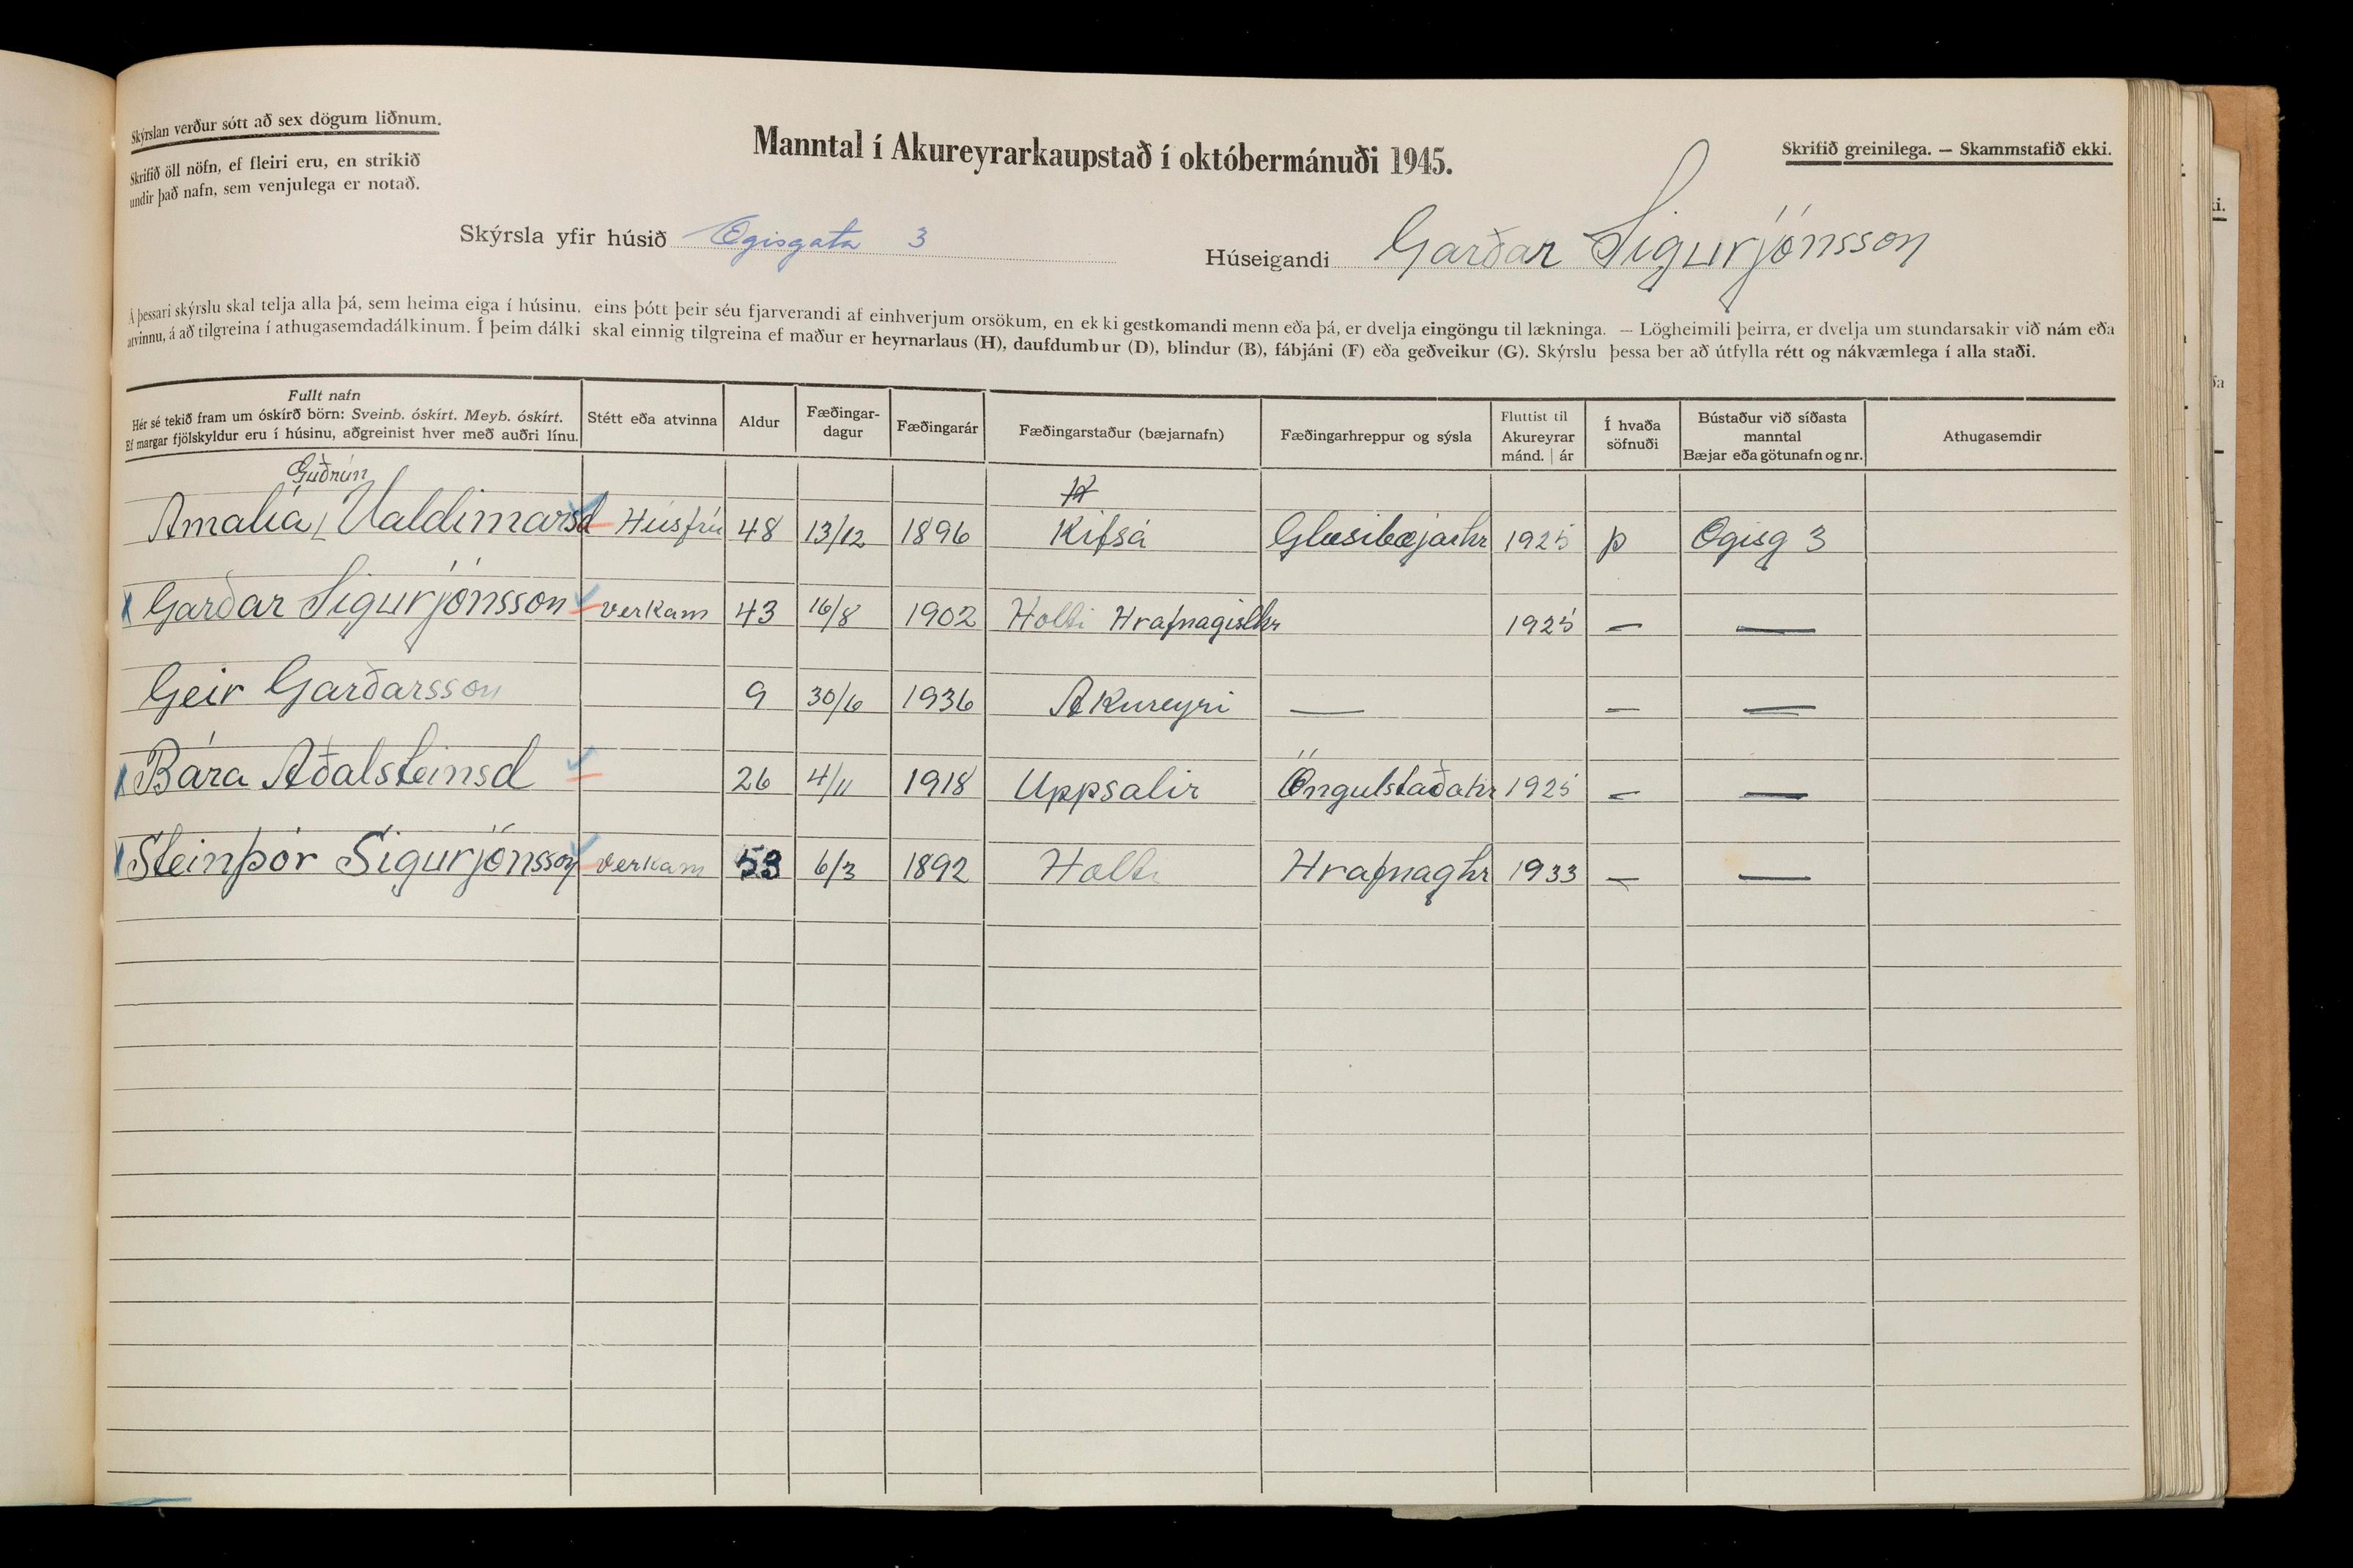 Skýrslan verður sótt að sex dögum liðnum.
Skrifið öll nöfn, ef fleiri eru, en strikið
undir það nafn, sem venjulega er notað.
Manntal í Akureyrarkaupstað í októbermánuði 1945.
Skrifið greinilega. — Skammstafið ekki.
Skýrsla yfir húsið Ægisgata 3
Húseigandi Garðar Sigurjónsson
Á þessari skýrslu skal telja alla þá, sem heima eiga í húsinu, eins þótt þeir séu fjarverandi af einhverjum orsökum, en ekki gestkomandi menn eða þá, er dvelja eingöngu til lækninga. — Lögheimili þeirra, er dvelja um stundarsakir við nám eða
atvinnu, á að tilgreina í athugasemdadálkinum. Í þeim dálki skal einnig tilgreina ef maður er heyrnarlaus (H), daufdumbur (D), blindur (B), fábjáni (F) eða geðveikur (G). Skýrslu þessa ber að útfylla rétt og nákvæmlega í alla staði.
Fullt nafn
Hér sé tekið fram um óskírð börn: Sveinb. óskírt. Meyb. óskírt.
Ef margar fjölskyldur eru í húsinu, aðgreinist hver með auðri línu.
Stétt eða atvinna
Aldur
Fæðingar-
dagur
Fæðingarár
Fæðingarstaður (bæjarnafn)
Fæðingarhreppur og sýsla
Fluttist til
Akureyrar
mánd. | ár
Í hvaða
söfnuði
Bústaður við síðasta
manntal
Bæjar eða götunafn og nr.
Athugasemdir
Guðrún
Amalía Valdimarsd Húsfrú 48 13/12 1896 Kífsá Glæsibæjarhr 1925 þ Ægisg 3
Garðar Sigurjónsson verkam 43 16/8 1902 Holti Hrafnagislhr 1925 — —
Geir Garðarsson 9 30/6 1936 Akureyri — — —
Bára Aðalsteinsd 26 4/11 1918 Uppsalir Öngulstaðahr 1925 — —
Steinþór Sigurjónsson verkam 53 6/3 1892 Holti Hrafnaghr 1933 — —